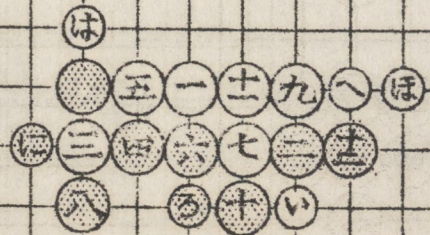 は
五 一 土 九 へ ほ
に 三 四 六 七 二 圭
八 ろ 十 い